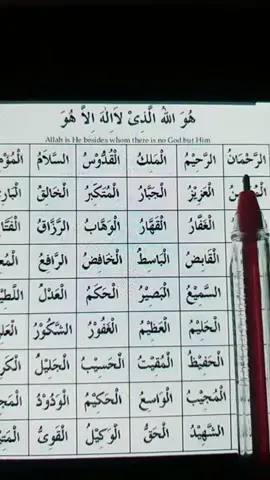 هُوَ اللهُ الَّذِىْ لاَاِلٰهَ اِلاَّ هُوَ
Allah is He besides whom there is no God but Him
الرَّحْمَانُ الرَّحِيْمُ الْمَلِكُ الْقُدُّوْسُ السَّلاَمُ
الْعَزِيْزُ الْجَبَّارُ الْمُتَكَبِّرُ الْخَالِقُ
الْغَفَّارُ الْقَهَّارُ الْوَهَّابُ الرَّزَّاقُ
الْقَابِضُ الْبَاسِطُ الْخَافِضُ الرَّافِعُ
السَّمِيْعُ الْبَصِيْرُ الْحَكَمُ الْعَدْلُ
الْحَلِيْمُ الْعَظِيْمُ الْغَفُوْرُ الشَّكُوْرُ
الْحَفِيْظُ الْمُقِيْتُ الْحَسِيْبُ الْجَلِيْلُ
الْمُجِيْبُ الْوَاسِعُ الْحَكِيْمُ الْوَدُوْدُ
الشَّهِيْدُ الْحَقُّ الْوَكِيْلُ الْقَوِىُّ